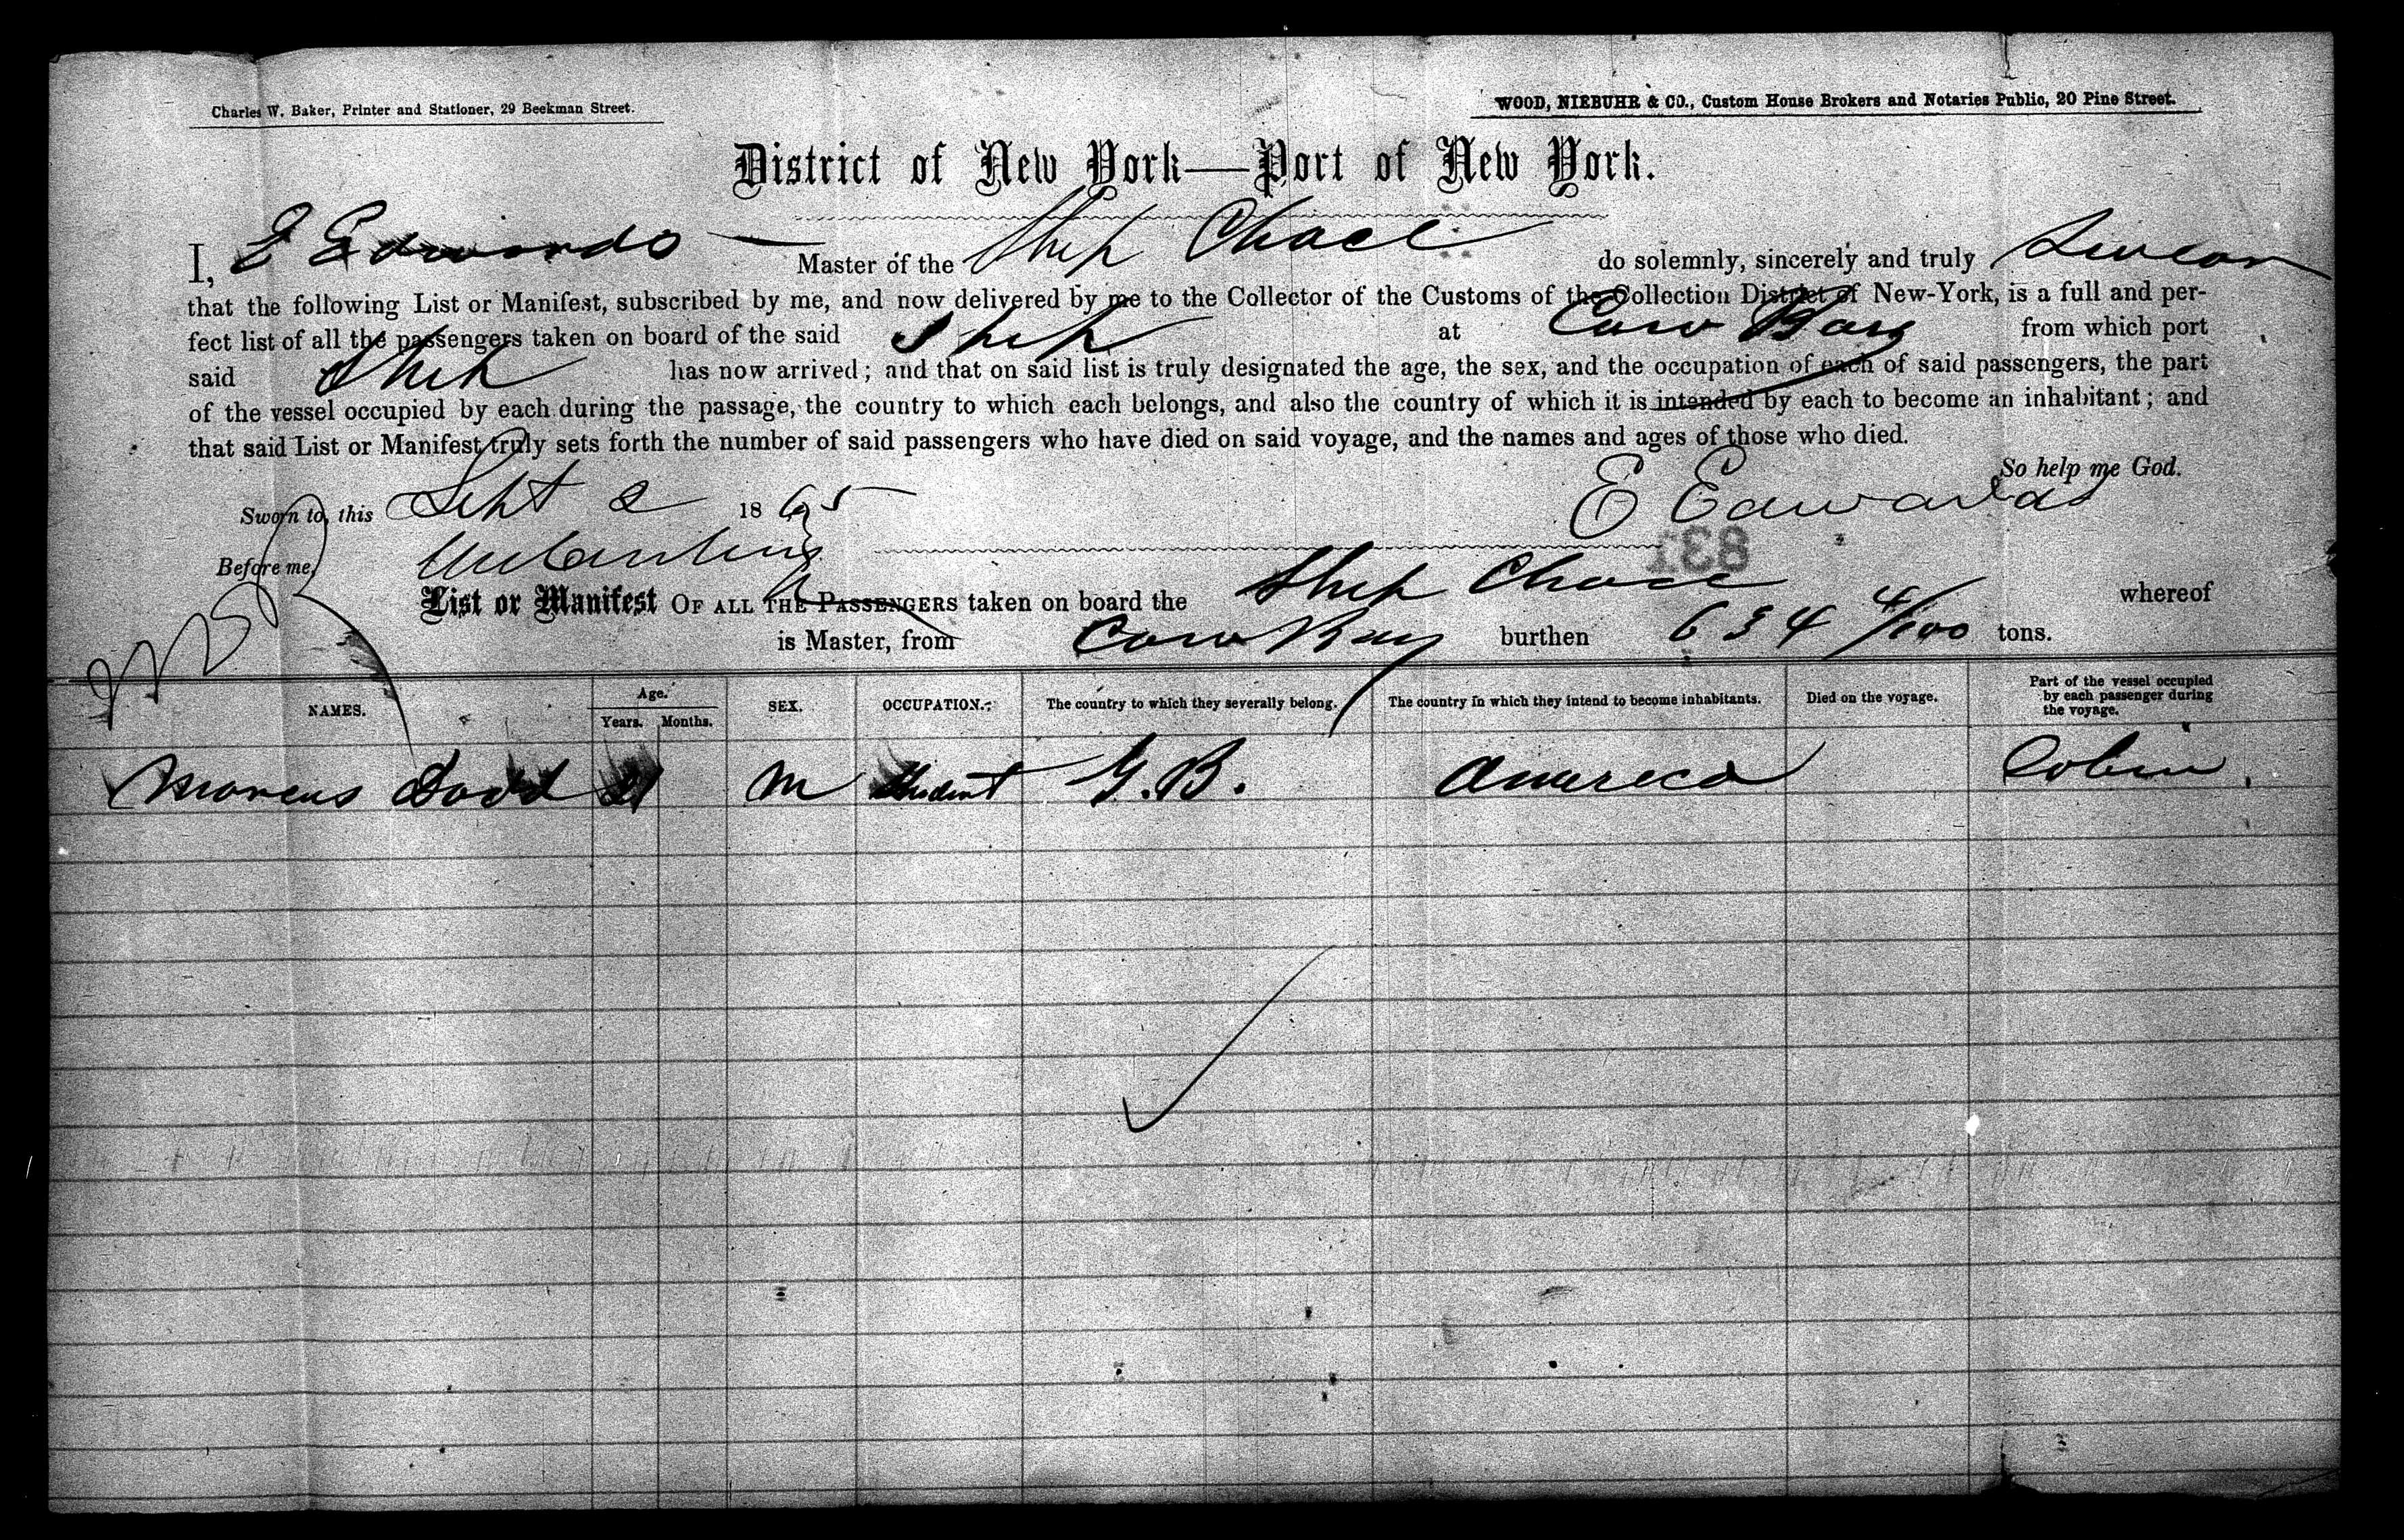 Charles W. Baker, Printer and Stationer, 29 Beekman Street.
WOOD, NIEBUHR & CO., Custom House Brokers and Notaries Public, 20 Pine Street.
District of New York—Port of New York.
I, E Edwards Master of the Ship Chace do solemnly, sincerely and truly Swear
that the following List or Manifest, subscribed by me, and now delivered by me to the Collector of the Customs of the Collection District of New-York, is a full and per-
fect list of all the passengers taken on board of the said Ship at Cow Bay from which port
said Ship has now arrived; and that on said list is truly designated the age, the sex, and the occupation of each of said passengers, the part
of the vessel occupied by each during the passage, the country to which each belongs, and also the country of which it is intended by each to become an inhabitant; and
that said List or Manifest truly sets forth the number of said passengers who have died on said voyage, and the names and ages of those who died.
So help me God.
Sworn to, this Sept 2 1865 E Edwards
Before me,
831
List or Manifest OF ALL THE PASSENGERS taken on board the Ship Chace whereof
is Master, from Cow Bay burthen 634 4/100 tons.
NAMES. Age. Years. Months. SEX. OCCUPATION. The country to which they severally belong. The country in which they intend to become inhabitants. Died on the voyage. Part of the vessel occupied by each passenger during the voyage.
Marcus Dodd 21 M Student G.B. America Cabin